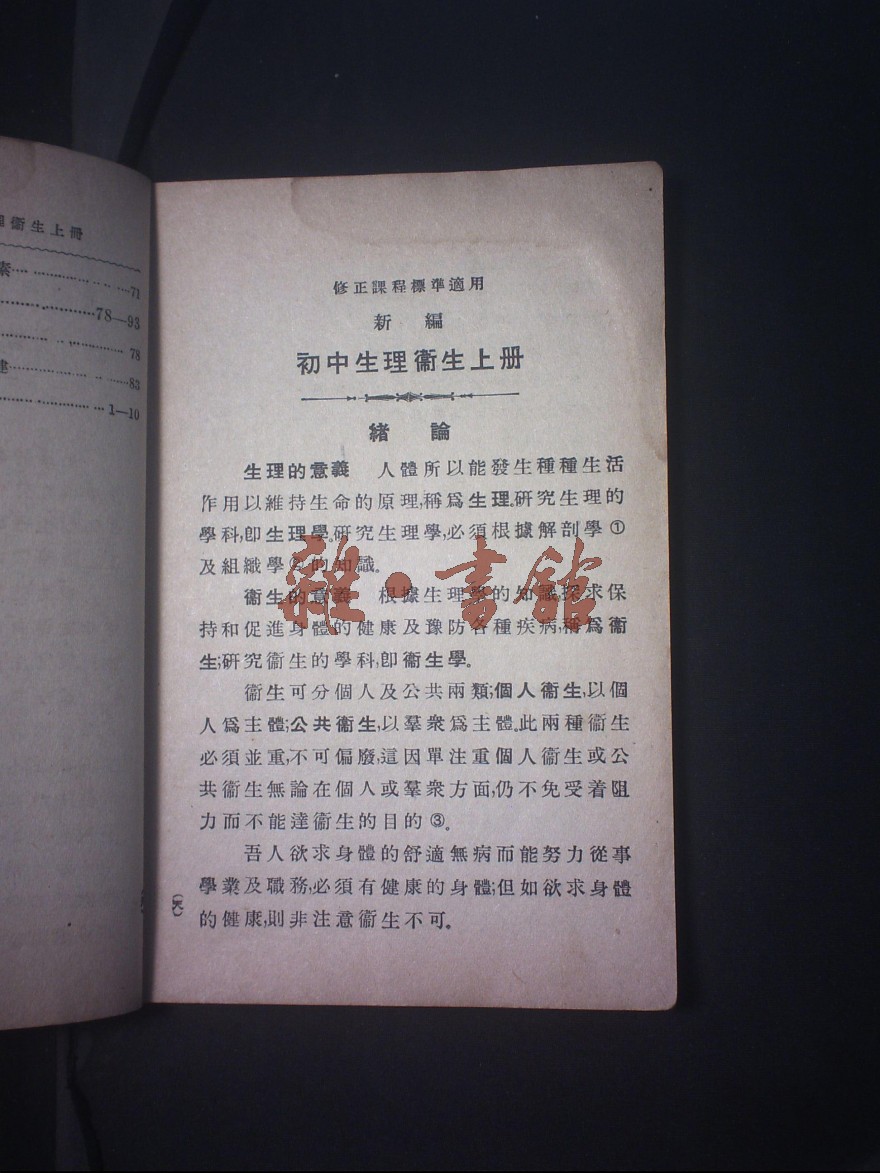 衞生上冊
素 71
78—93
78
83
1—10
修正課程標準適用
新編
初中生理衞生上册
緒論
生理的意義　人體所以能發生種種生活
作用以維持生命的原理,稱爲生理。研究生理的
學科,卽生理學。研究生理學,必須根據解剖學①
及組織學②的知識。
衞生的意義　根據生理學的知識探求保
持和促進身體的健康及豫防各種疾病,稱爲衞
生;硏究衞生的學科,卽衞生學。
衞生可分個人及公共兩類;個人衞生,以個
人爲主體;公共衞生,以羣衆爲主體。此兩種衞生
必須並重,不可偏廢,這因單注重個人衞生或公
共衞生無論在個人或羣衆方面,仍不免受着阻
力而不能達衞生的目的③。
吾人欲求身體的舒適無病而能努力從事
學業及職務,必須有健康的身體;但如欲求身體
的健康,則非注意衞生不可。
雜·書館